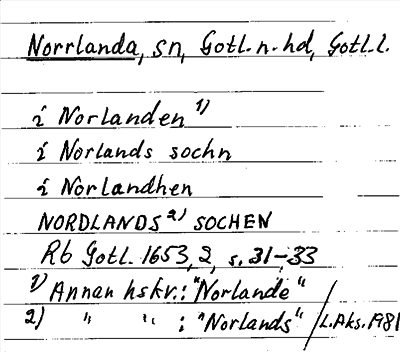 Norrlanda, sn, Gotl. n. hd, Gotl. l.
i Norlanden 1)
i Norlands sochn
i Norlandhen
NORDLANDS 2) SOCHEN
Rb Gotl. 1653, 2, s. 31-33
1) Annan hskr.: "Norlande"
2) " " : "Norlands" /L. Aks. 1981